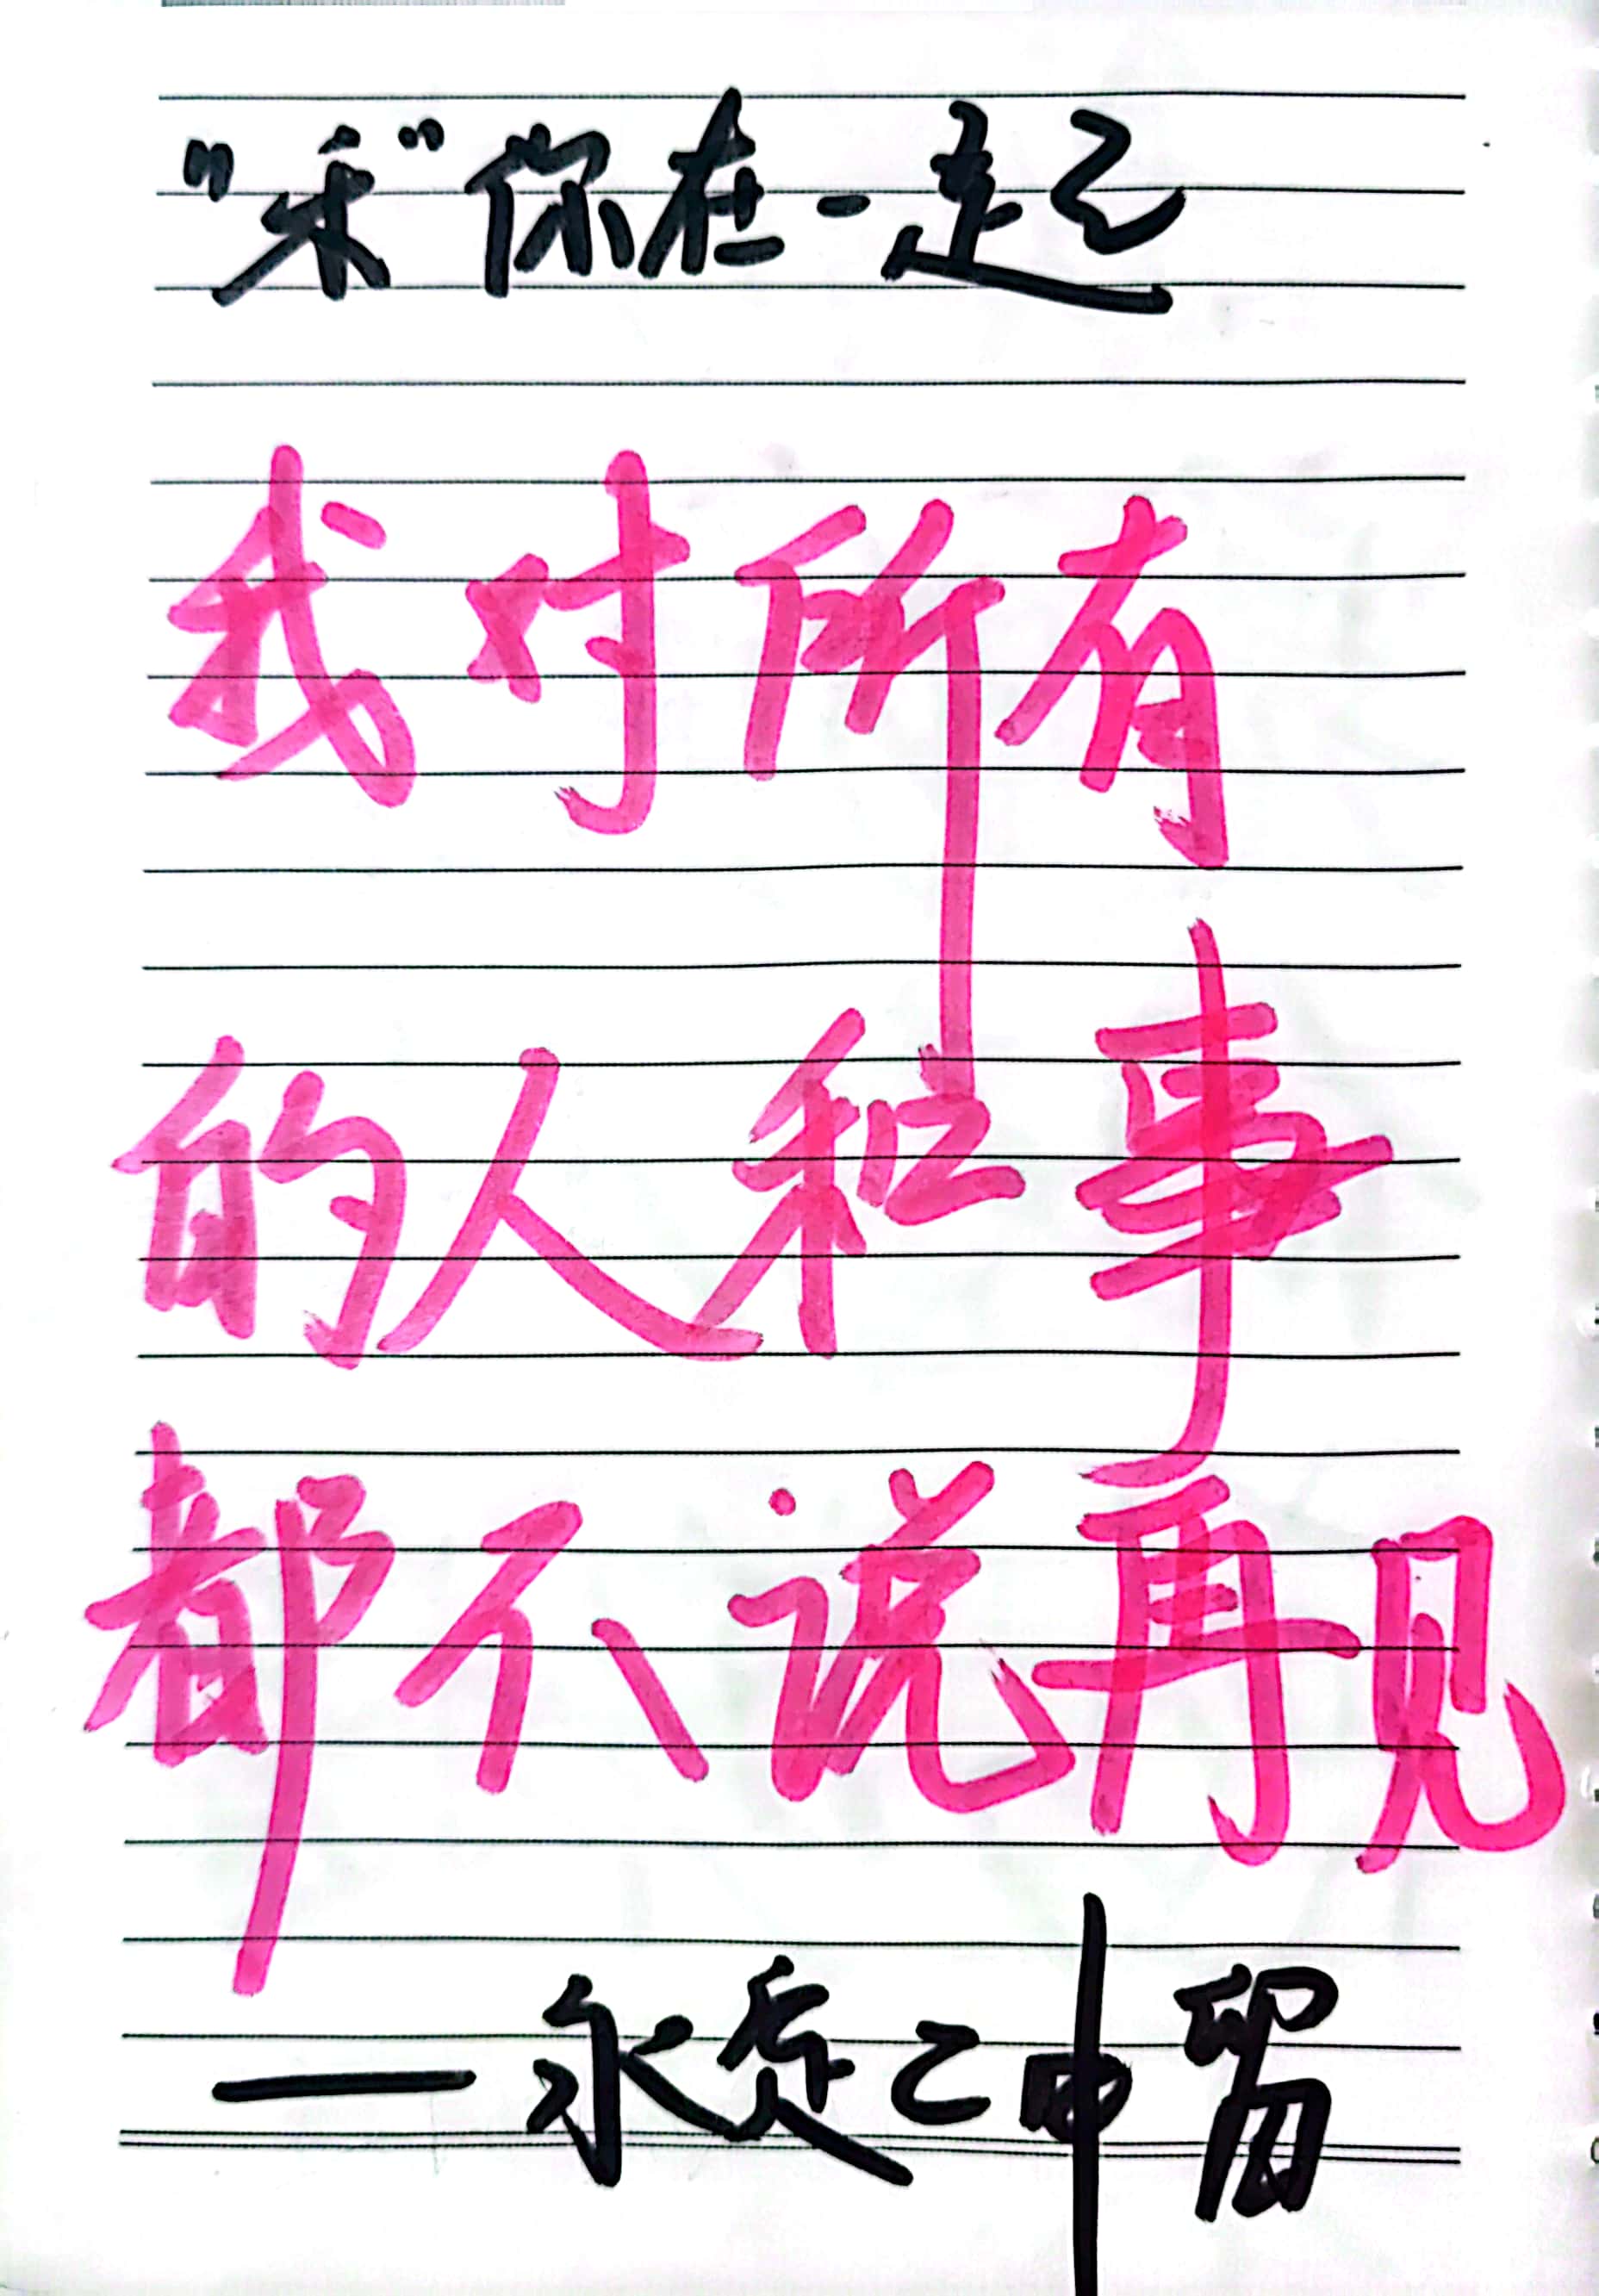 "禾"你在一起
我对所有
的人和事
都不说再见
——永乙申留